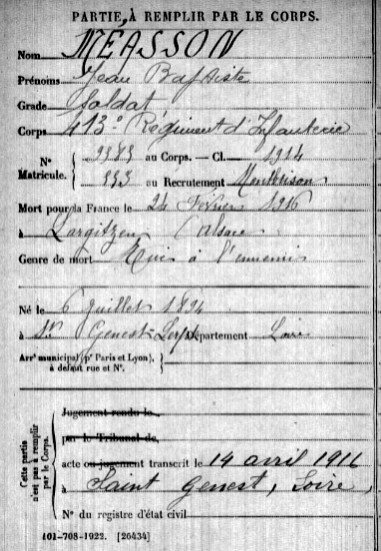 PARTIE À REMPLIR PAR LE CORPS.
Nom MÉASSON
Prénoms Jean Baptiste
Grade Soldat
Corps 413e Régiment d'Infanterie
N° Matricule. { 3983 au Corps. — Cl. 1914
553 au Recrutement Montbrison
Mort pour la France le 24 Février 1916
à Largitzen (Alsace
Genre de mort Tué à l'ennemi
Né le 6 Juillet 1894
à St Genest-Lerpt Département Loire
Arrt municipal (pr Paris et Lyon), à défaut rue et N°.
Cette partie n'est pas à remplir par le Corps.
Jugement rendu le
par le Tribunal de
acte ou jugement transcrit le 14 avril 1916
à Saint Genest, Loire,
N° du registre d'état civil
101-708-1922. [26434]